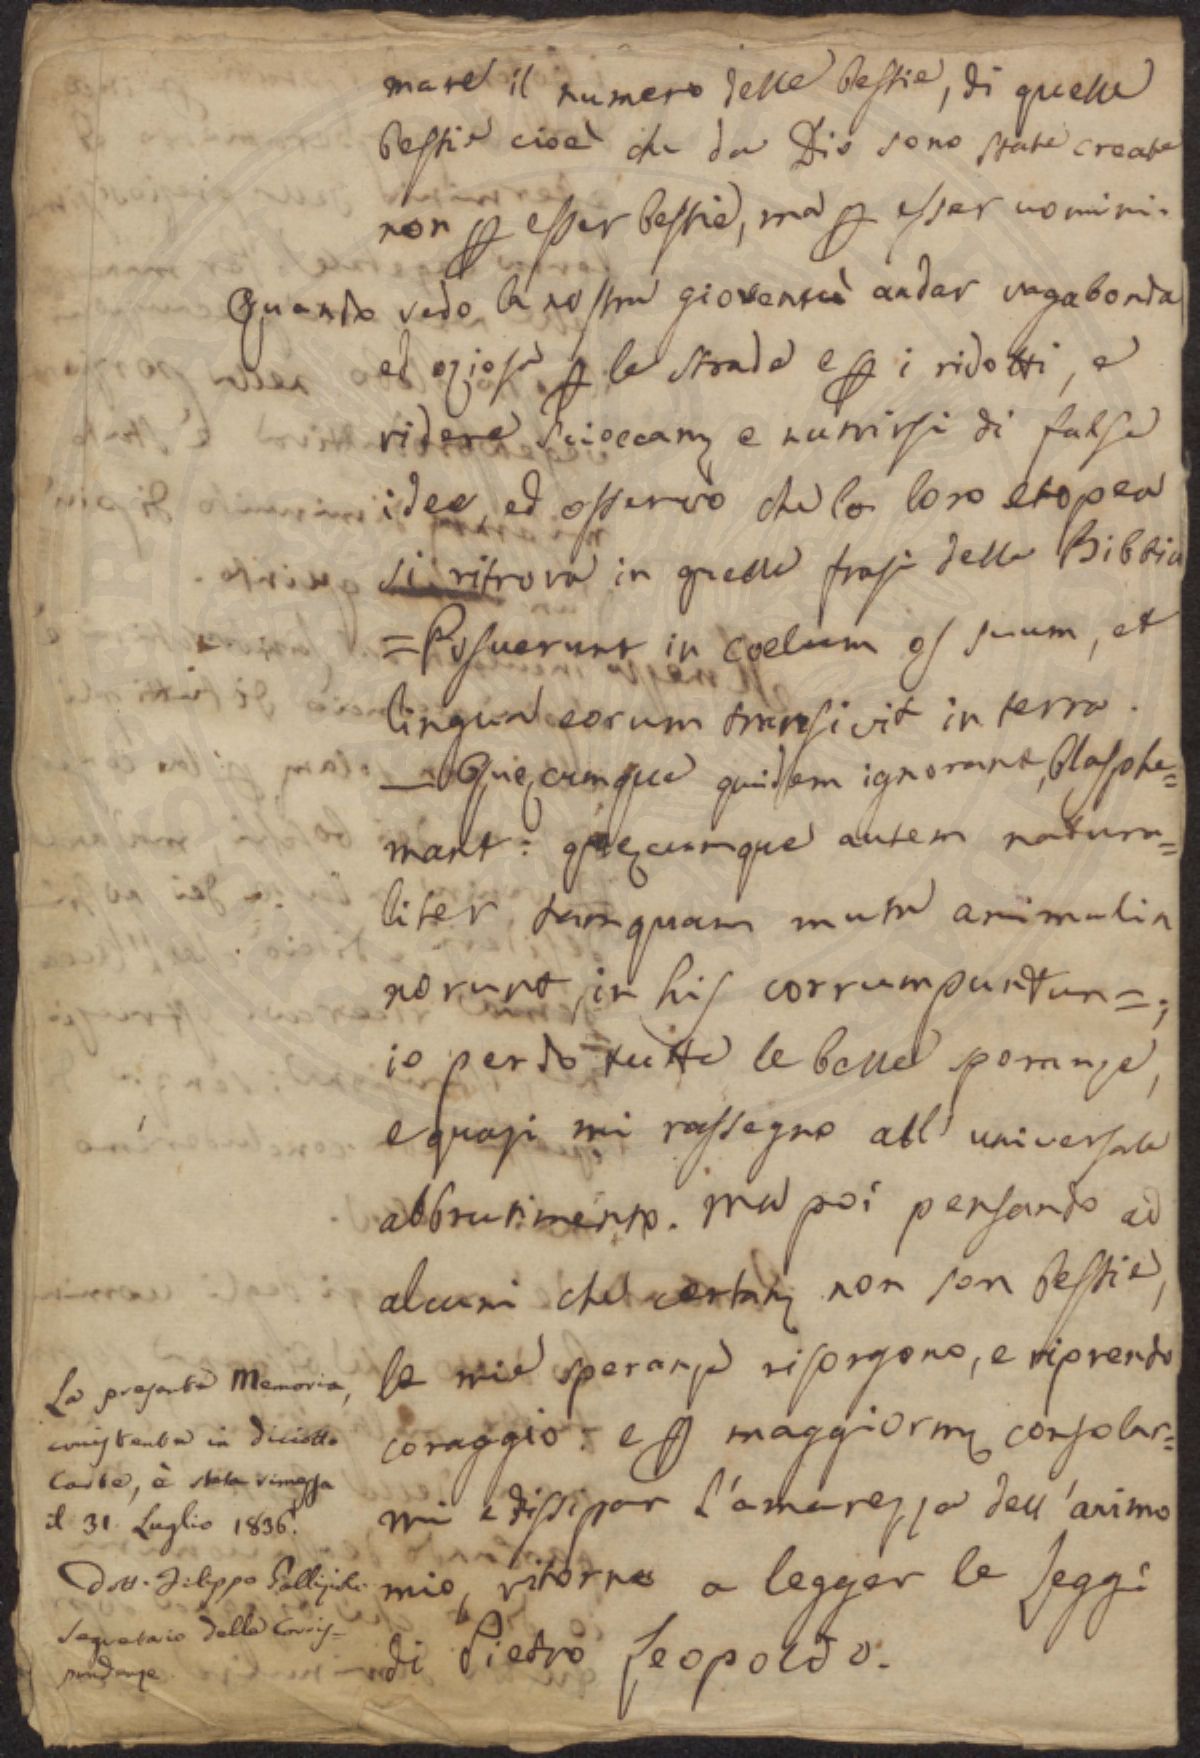 mare il numero delle bestie, di quelle
bestie cioè che da Dio sono state create
non p esser bestie, ma p esser uomini.
Quando vedo la nostra gioventù andar vagabonda
ed oziosa p le strade e p i ridotti, e
ridere scioccam e nutrirsi di false
idee, ed osservo che la loro etopea
si ritrova in quelle frasi della Bibbia
= Posuerunt in coelum os suum, et
lingua eorum transivit in terra.
— Quęcumque quidem ignorant, blasphe=
mant: quęcumque autem natura=
liter tamquam muta animalia
norunt, in his corrumpuntur =;
io perdo tutte le belle speranze,
e quasi mi rassegno all' universale
abbrutimento. Ma poi pensando ad
alcuni che certam non son bestie,
le mie speranze risorgono, e riprendo
coraggio: e p maggiorm consolar=
mi e dissipar l'amarezza dell'animo
mio, ritorno a legger le Leggi
di Pietro Leopoldo.
La presente Memoria,
consistente in diciotto
Carte, è stata rimessa
il 31. Luglio 1836.
Dott. Filippo
Segretario delle Corris=
pondenze.